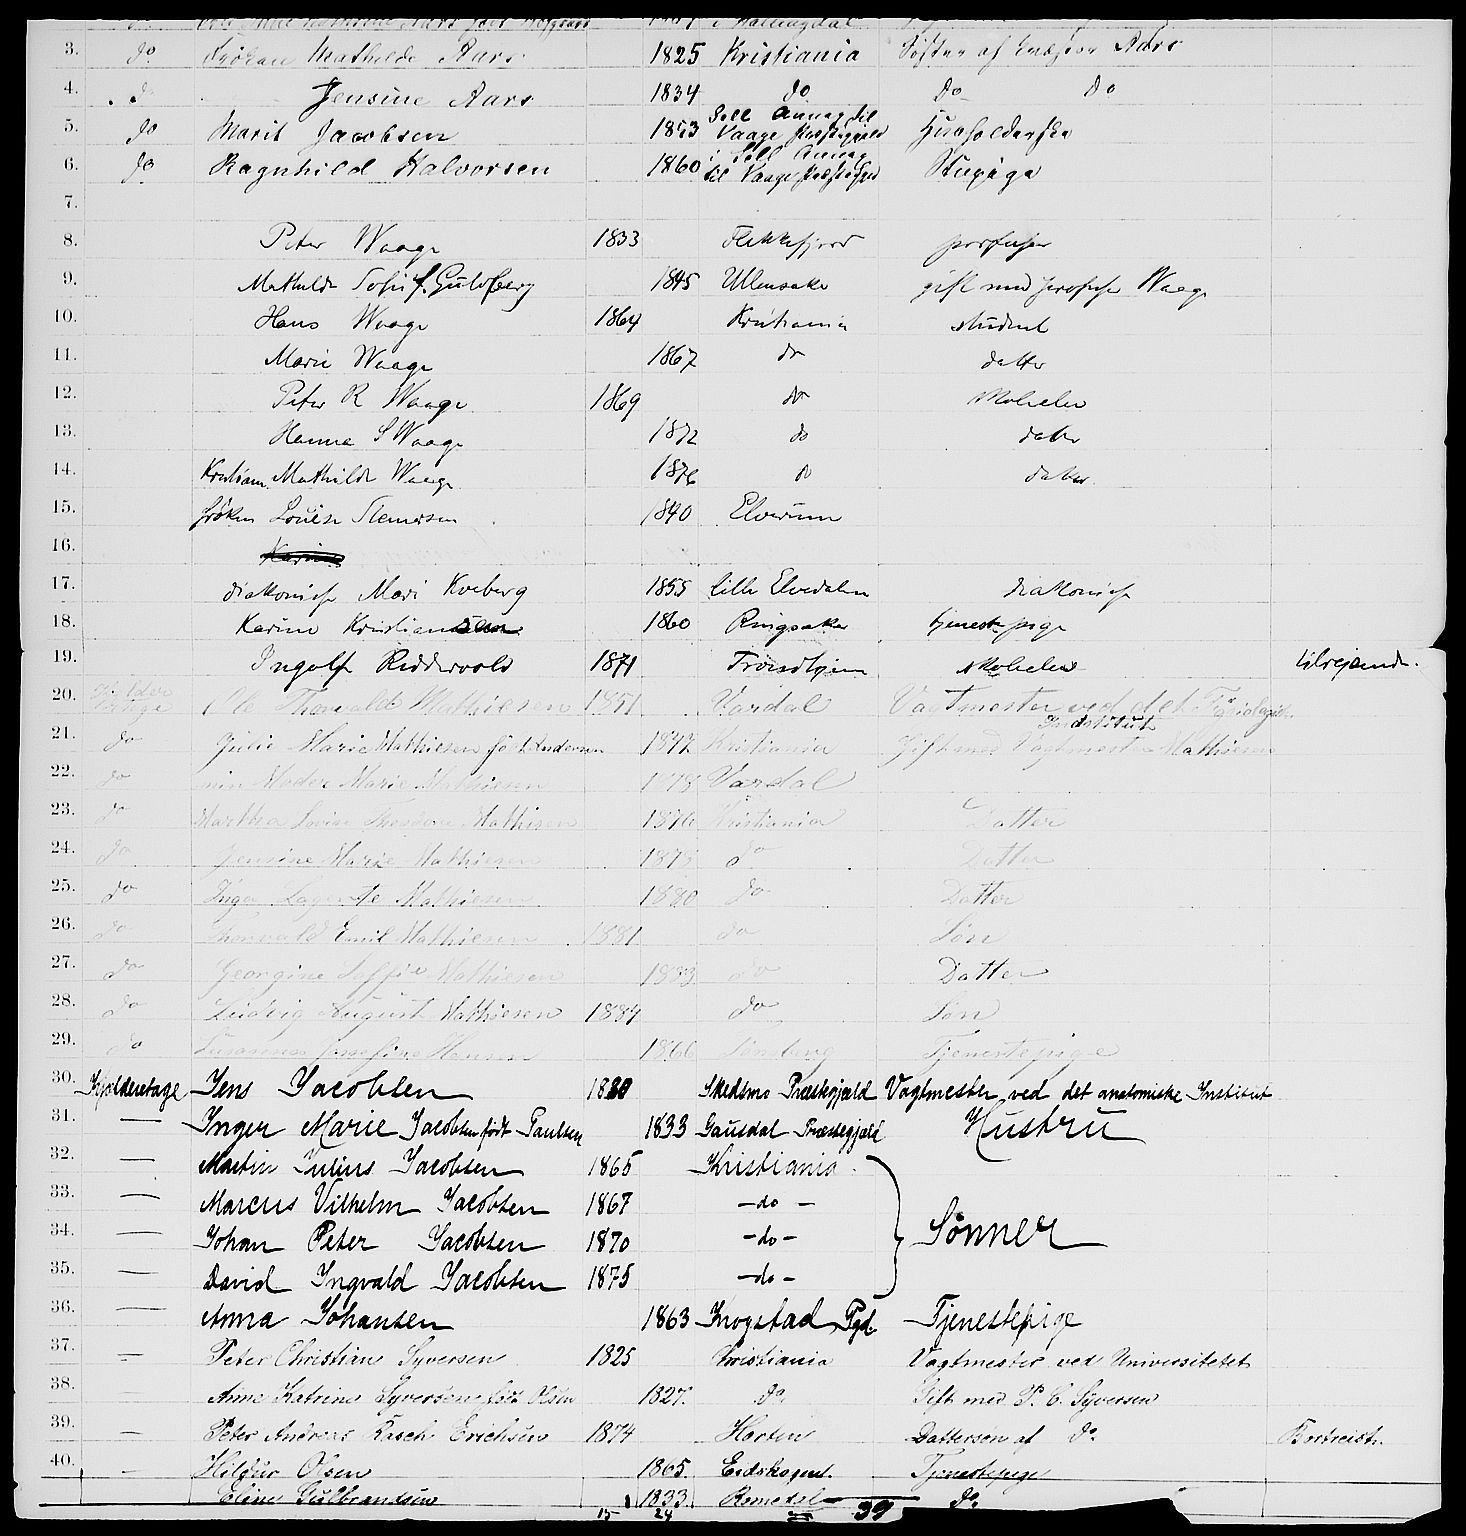 3. do Frøken Mathilde Aars 1825 Kristiania Søster af Aars
4. do Jensine Aars 1834 do do do
5. do Marit Jacobsen 1853 Sell Annex til Vaage Præstegjæld Husholderske
6. do Ragnhild Halvorsen 1860 i Sell Annex til Vaage Stuepige
7.
8. Peter Waage 1833 Flekkefjord professor
9. Mathilde Sofie f. Guldberg 1845 Ullensaker gift med professor Waage
10. Hans Waage 1864 Kristiania student
11. Marie Waage 1867 do datter
12. Peter R Waage 1869 do skoleelev
13. Hanna S Waage 1872 do datter
14. Mathilde Waage 1876 do datter
15. frøken Louise 1840 Elverum
16.
17. diakonisse Mari Kveberg 1855 lille Elvedalen diakonisse
18. Karine Kristiansen 1860 Ringsaker tjenestepige
19. Ingolf Ridderwold 1871 Trondhjem skoleelev tilreisende.
20. Ole Thorvald Mathiesen 1851 Vardal Vagtmester ved det
Institut
21. do Julie Marie Mathiesen født Andersen 1847 Kristiania Gift med Vagtmester Mathiesen
22. do min Moder Marie Mathiesen Vardal
23. do Martha Mathisen 1876 Kristiania Datter
24. do Jensine Marie Mathiesen 1878 do Datter
25. do Inga Mathiesen 1880 do Datter
26. do Thorvald Emil Mathiesen 1881 do Søn
27. do Georgine Soffie Mathiesen 1883 do Datter
28. do Ludvig August Mathiesen 1884 do Søn
29. do Josefine Hansen 1866 Tønsberg Tjenestepige
30. Kjælderetage Jens Jacobsen Skedsmo Præstegjæld Vagtmester ved det anatomiske Institut
31. — Inger Marie Jacobsen født Paulsen 1833 Gausdal Præstegjæld Hustru
32. — Martin Julius Jacobsen 1865 Kristiania
33. — Marcus Vilhelm Jacobsen 1867 -do-
34. — Johan Peter Jacobsen 1870 -do- Sønner
35. — David Ingvald Jacobsen 1875 -do-
36. — Anna Johansen 1863 Krogstad Pgd. Tjenestepige
37. — Peter Christian Syversen 1825 Christiania Vagtmester ved Universitetet
38. — Anne Katrine Syversen født Olsen 1827. do. Gift med P. C. Syversen
39. — Peter Andreas Rasch Erichsen 1874 Horten Dattersøn af do. Bortreist.
40. — Hildur Olsen 1865. Eidskogen. Tjenestepige
Eline Gulbrandsen 1833. Romedal do.
15 24 39